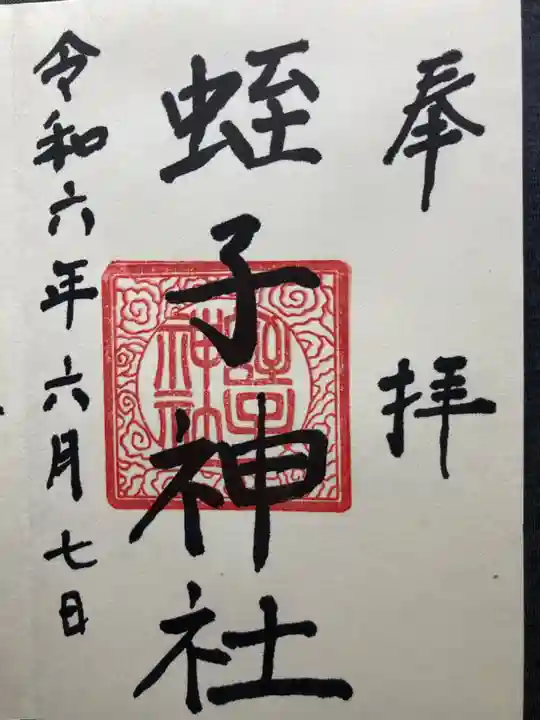 奉拝
蛭子神社
令和六年六月七日